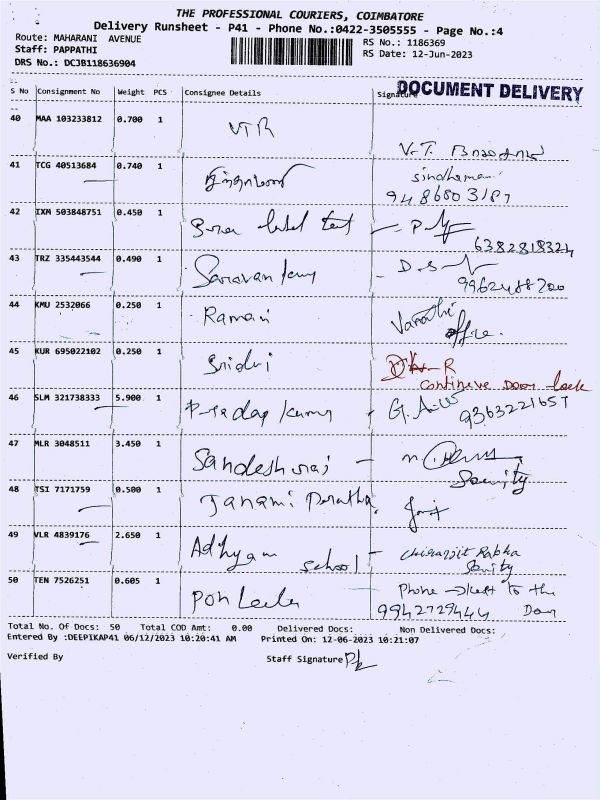 THE PROFESSIONAL COURIERS, COIMBATORE
Delivery Runsheet - P41 - Phone No.:0422-3505555 - Page No.:4
Route: MAHARANI AVENUE
RS No.: 1186369
Staff: PAPPATHI
RS Date: 12-Jun-2023
DRS No.: DCJB118636904
DOCUMENT DELIVERY
S No Consignment No Weight PCS Consignee Details Signature
40 MAA 103233812 0.700 1 VTR
V.T.
41 TCG 40513684 0.740 1
42 IXM 503848751 0.450 1
6382818324
43 TRZ 335443544 0.490 1 Saravan D.S
44 KMU 2532066 0.250 1 Ramani
office.
45 KUR 695022102 0.250 1 Sridevi R
Door lock
46 SLM 321738333 5.900 1 9363221657
47 MLR 3048511 3.450 1 Sandeshraj
48 TSI 7171759 0.500 1 Janani
49 VLR 4839176 2.650 1 Adhyam School Chiranjit Rabha
50 TEN 7526251 0.605 1 Phone to the
9942729444 Door
Total No. Of Docs: 50 Total COD Amt: 0.00 Delivered Docs: Non Delivered Docs:
Entered By :DEEPIKAP41 06/12/2023 10:20:41 AM Printed On: 12-06-2023 10:21:07
Verified By Staff Signature